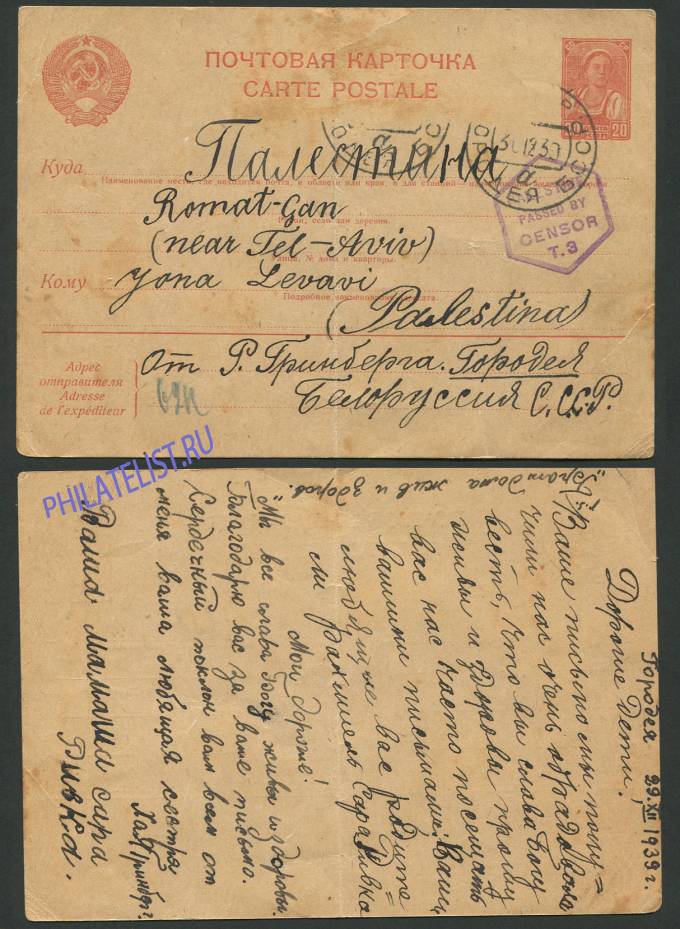 ПОЧТОВАЯ КАРТОЧКА
CARTE POSTALE
20
31 12 39
Куда
Палестина
Romat-Gan
(near Tel-Aviv)
Кому
Jona Levavi
(Palestina)
PASSED BY
CENSOR
T.3
Адрес
отправителя
Adresse
de l'expéditeur
От Р. Гринберга. Городея
Белоруссия С.С.С.Р.
PHILATELIST.RU
Городея 29 XII 1939 г.
Дорогие Дети!
Ваше письмо мы полу=
чили нас очень обрадовала
весть, что вы слава Богу
живы и здоровы прошу
вас нас часто посещать
вашими письмами. Ваши
любящие вас родите=
ли Сара Ривка
Мои дорогие!
Мы все слава Богу живы и здоровы.
Благодарю вас за ваше письмо.
Сердечный поклон вам всем от
меня ваша любящая сестра
Гринберг.
Ваша мамаша сара
Ривка.
дома жив и здоров.